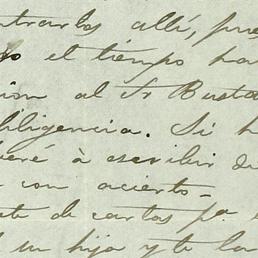 ntrarlos allí, pues
o el tiempo ha
ion al Sr Busta
diligencia. Si h
eré à escribir de
con acierto_
te de cartas pª
un hijo y te la